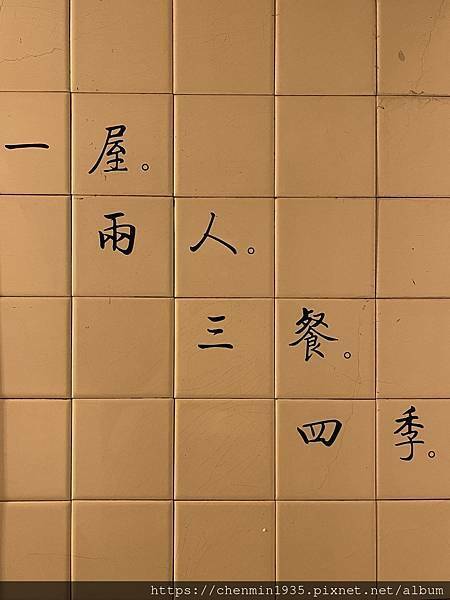 一屋。
兩人。
三餐。
四季。
https://chenmin1935.pixnet.net/album